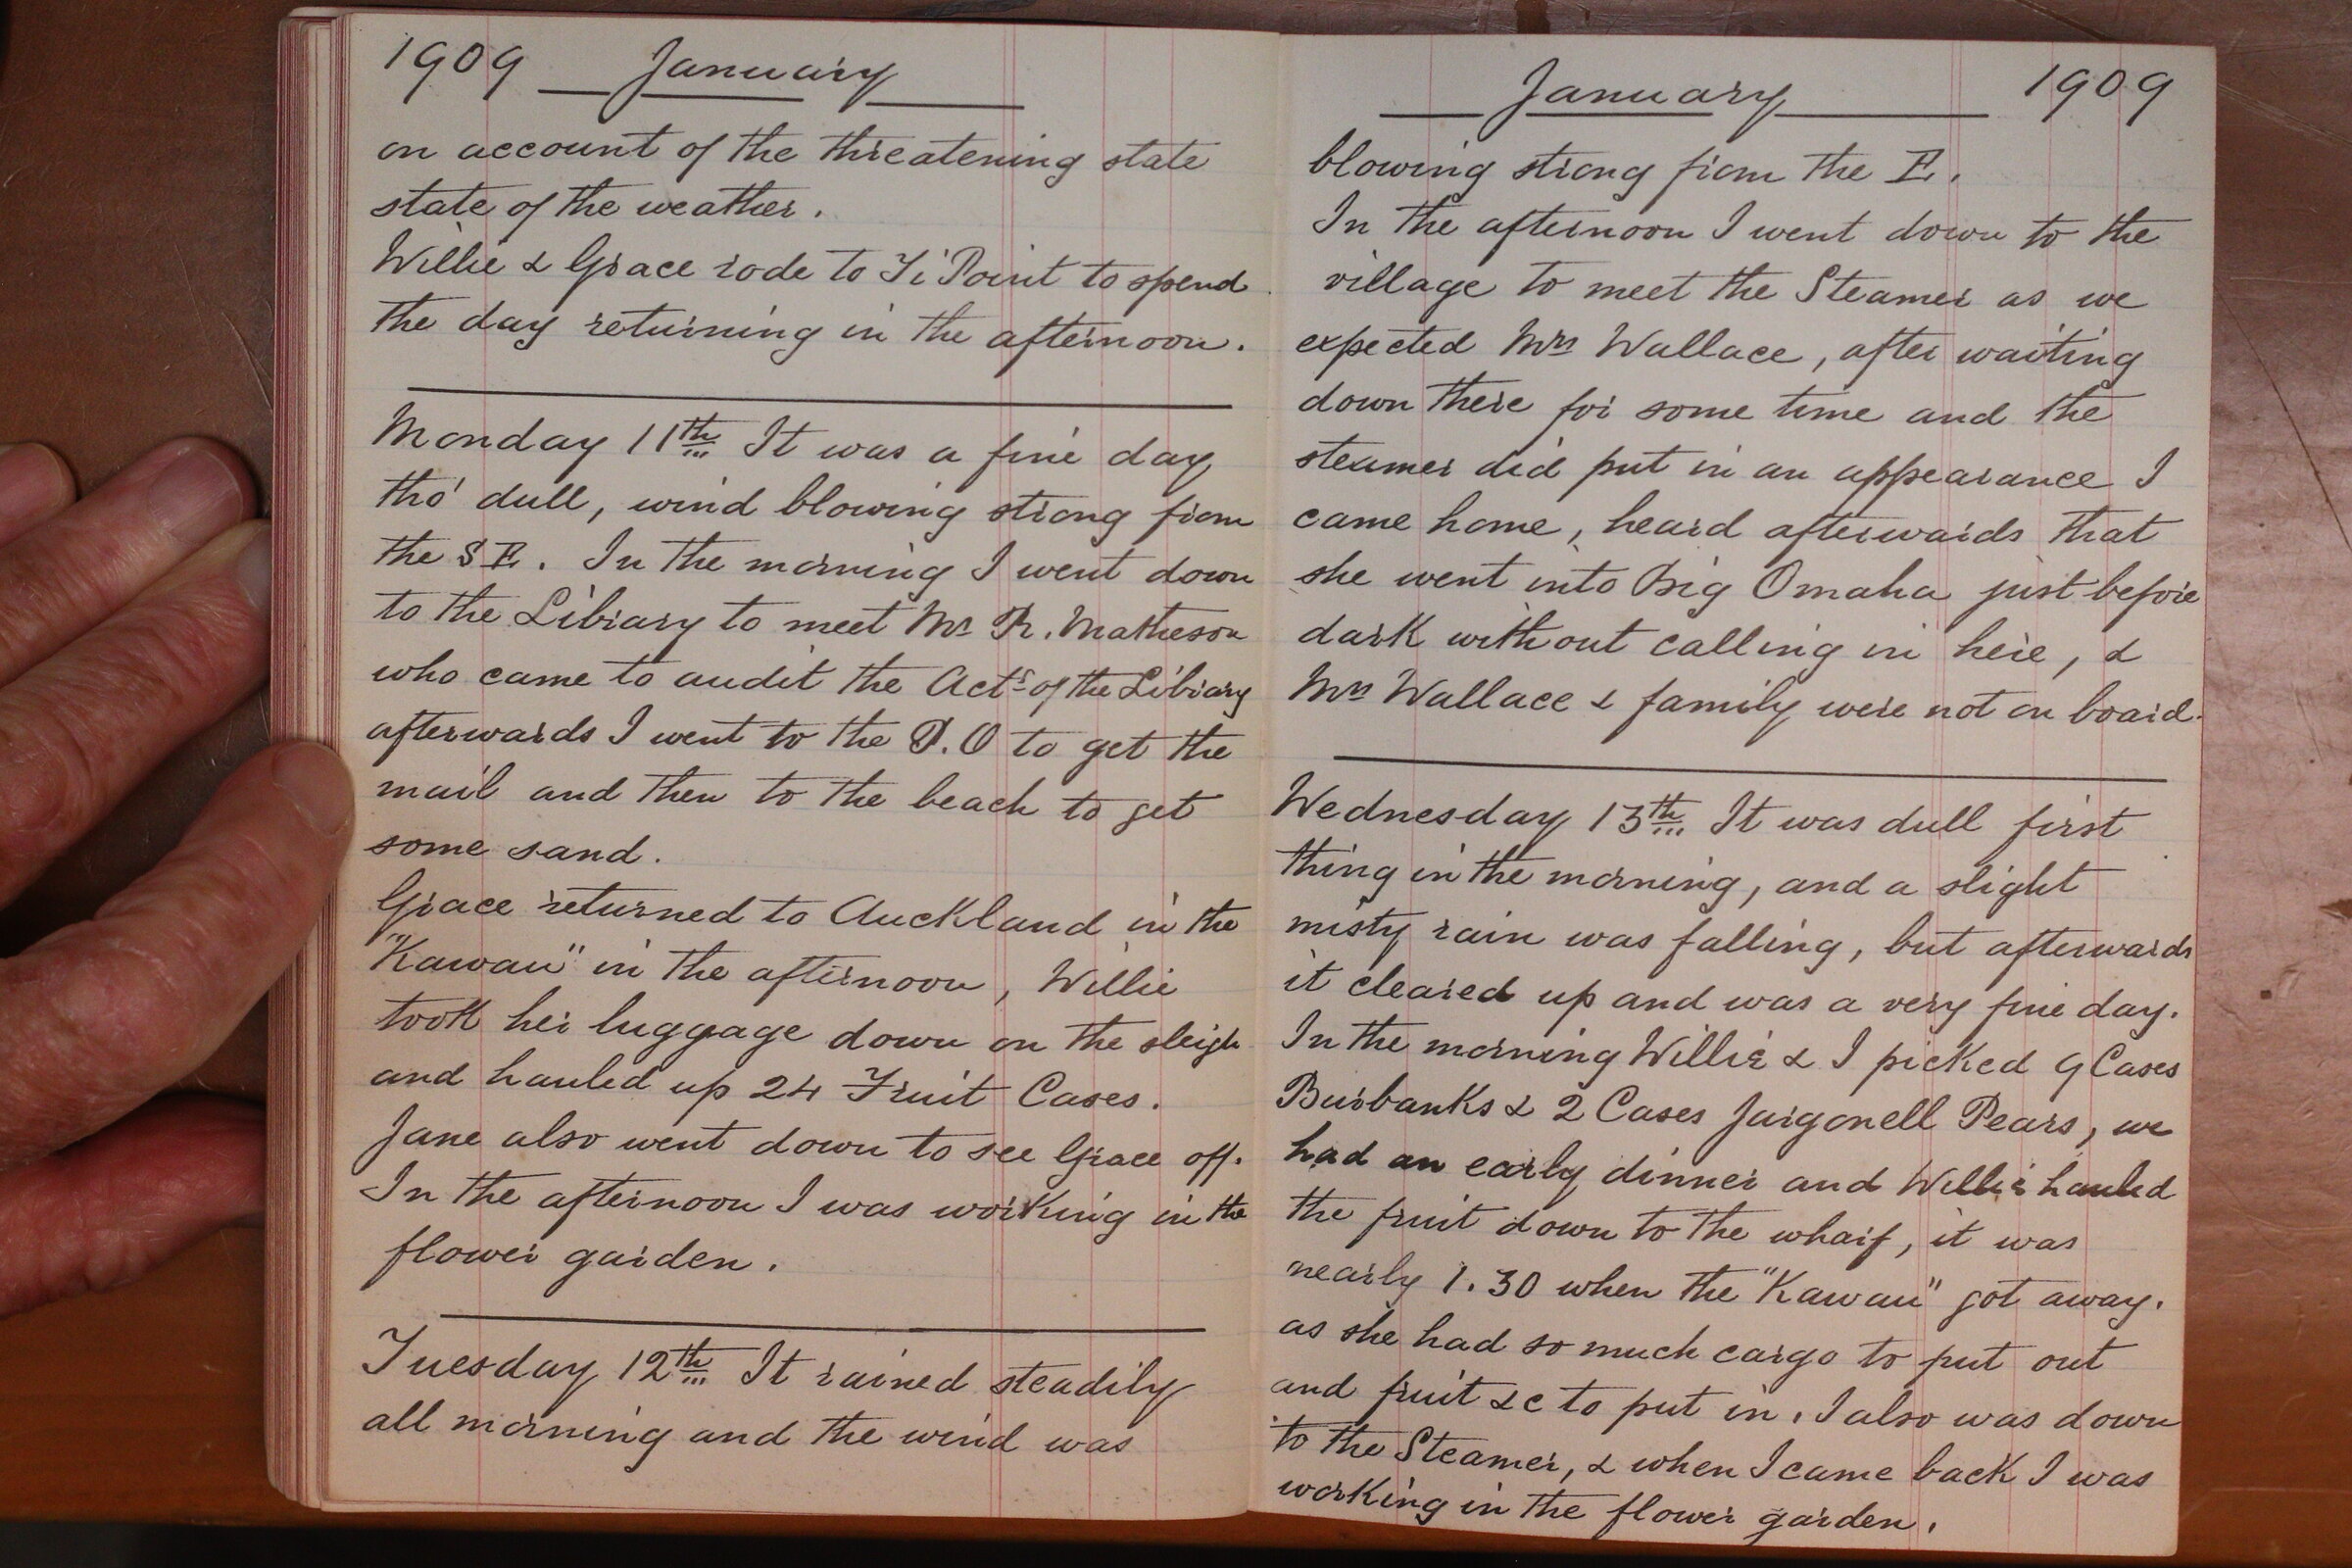 1909 January
on account of the threatening state
state of the weather.
Willie & Grace rode to Ti Point to spend
the day returning in the afternoon.
Monday 11th It was a fine day
tho' dull, wind blowing strong from
the S E. In the morning I went down
to the Library to meet Mr R. Matheson
who came to audit the Acts of the Library
afterwards I went to the P.O to get the
mail and then to the beach to get
some sand.
Grace returned to Auckland in the
"Kawau" in the afternoon, Willie
took her luggage down on the sleigh
and hauled up 24 Fruit Cases.
Jane also went down to see Grace off.
In the afternoon I was working in the
flower garden.
Tuesday 12th It rained steadily
all morning and the wind was
January 1909
blowing strong from the E.
In the afternoon I went down to the
village to meet the Steamer as we
expected Mrs Wallace, after waiting
down there for some time and the
steamer did put in an appearance I
came home, heard afterwards that
she went into Big Omaha just before
dark without calling in here, &
Mrs Wallace & family were not on board.
Wednesday 13th It was dull first
thing in the morning, and a slight
misty rain was falling, but afterwards
it cleared up and was a very fine day.
In the morning Willie & I picked 9 Cases
Burbanks & 2 Cases Jargonell Pears, we
had an early dinner and Willie hauled
the fruit down to the wharf, it was
nearly 1.30 when the "Kawau" got away.
as she had so much cargo to put out
and fruit &c to put in. I also was down
to the Steamer, & when I came back I was
working in the flower garden.